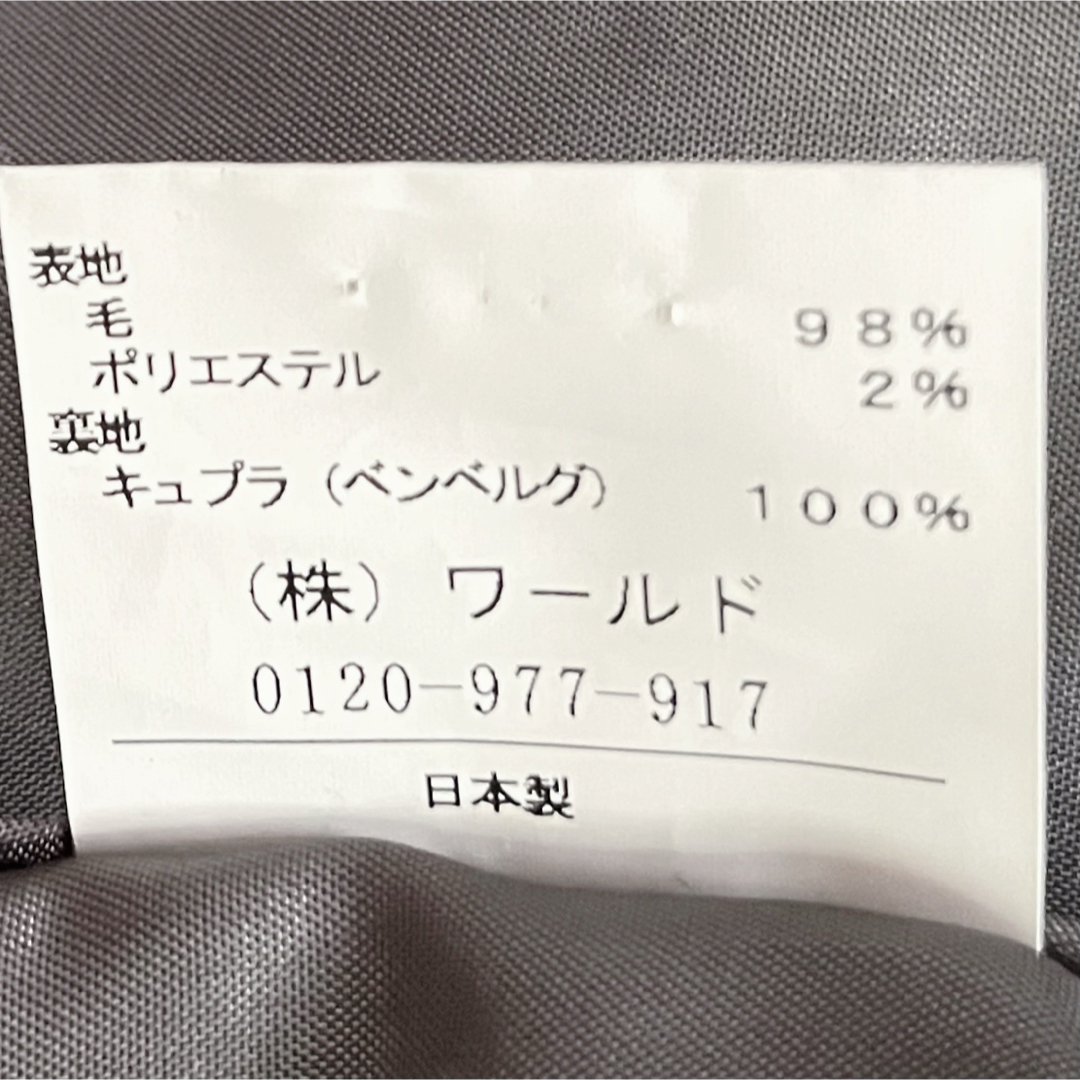 表地
毛 98%
ポリエステル 2%
裏地
キュプラ（ベンベルグ） 100%
（株） ワールド
0120-977-917
日本製